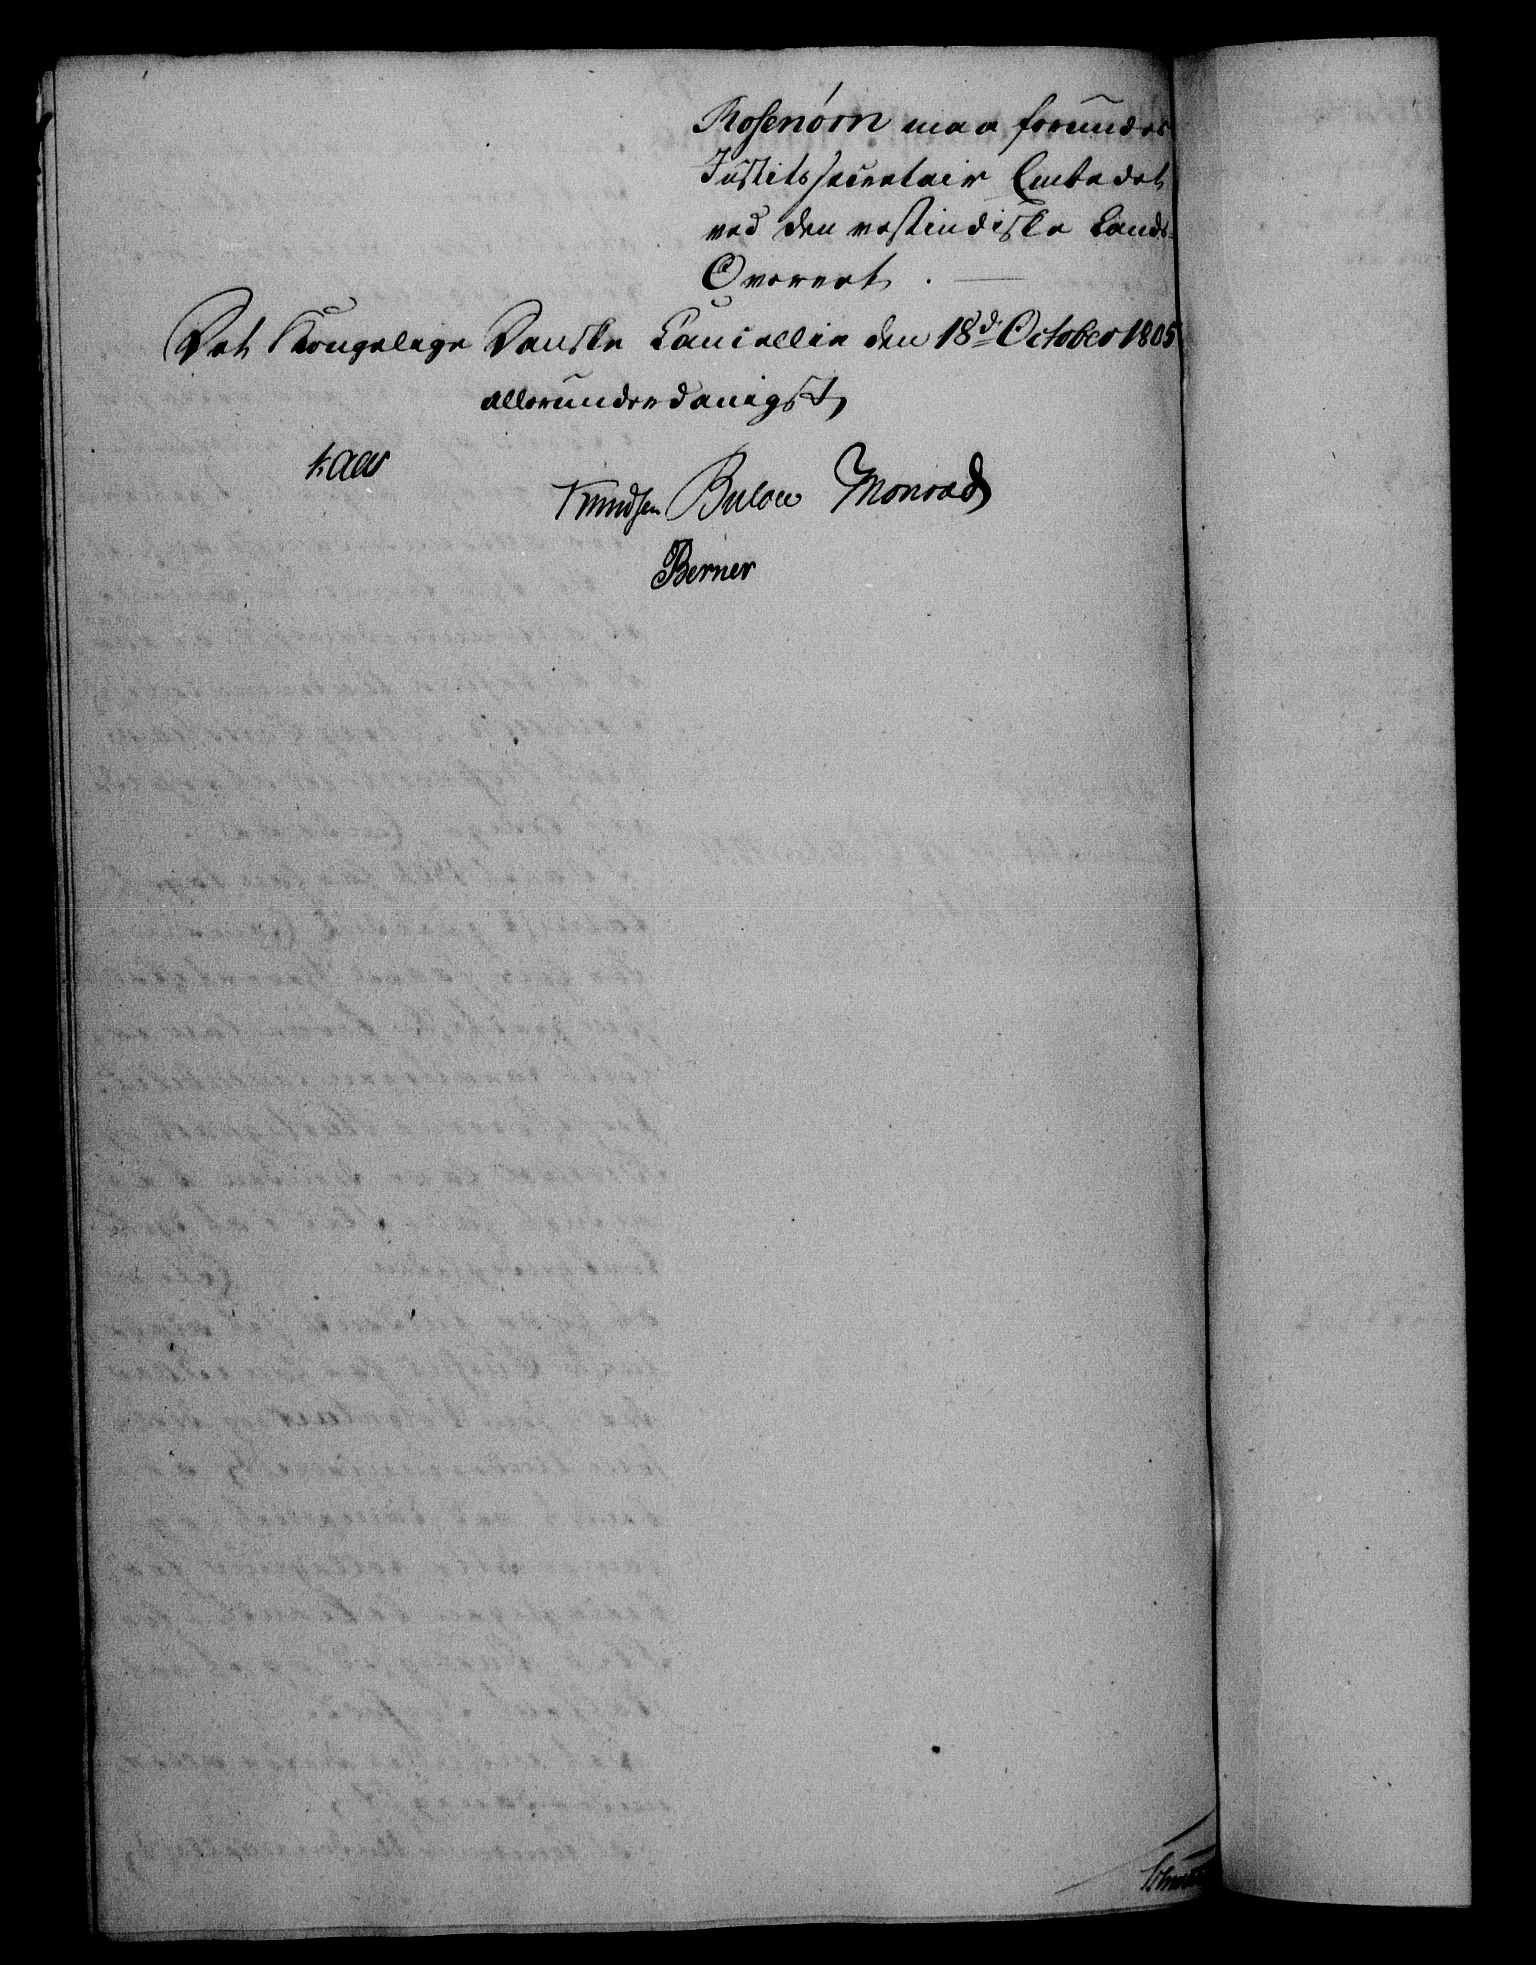 Rosenörn maa forundes
Justitssecretair Embedet
ved den vestindiske Lands-
Overret.
Det Kongelige Danske Cancellie den 18d October 1805
allerunderdanigst
Kaas
Knudsen Bülow Monrad
Berner